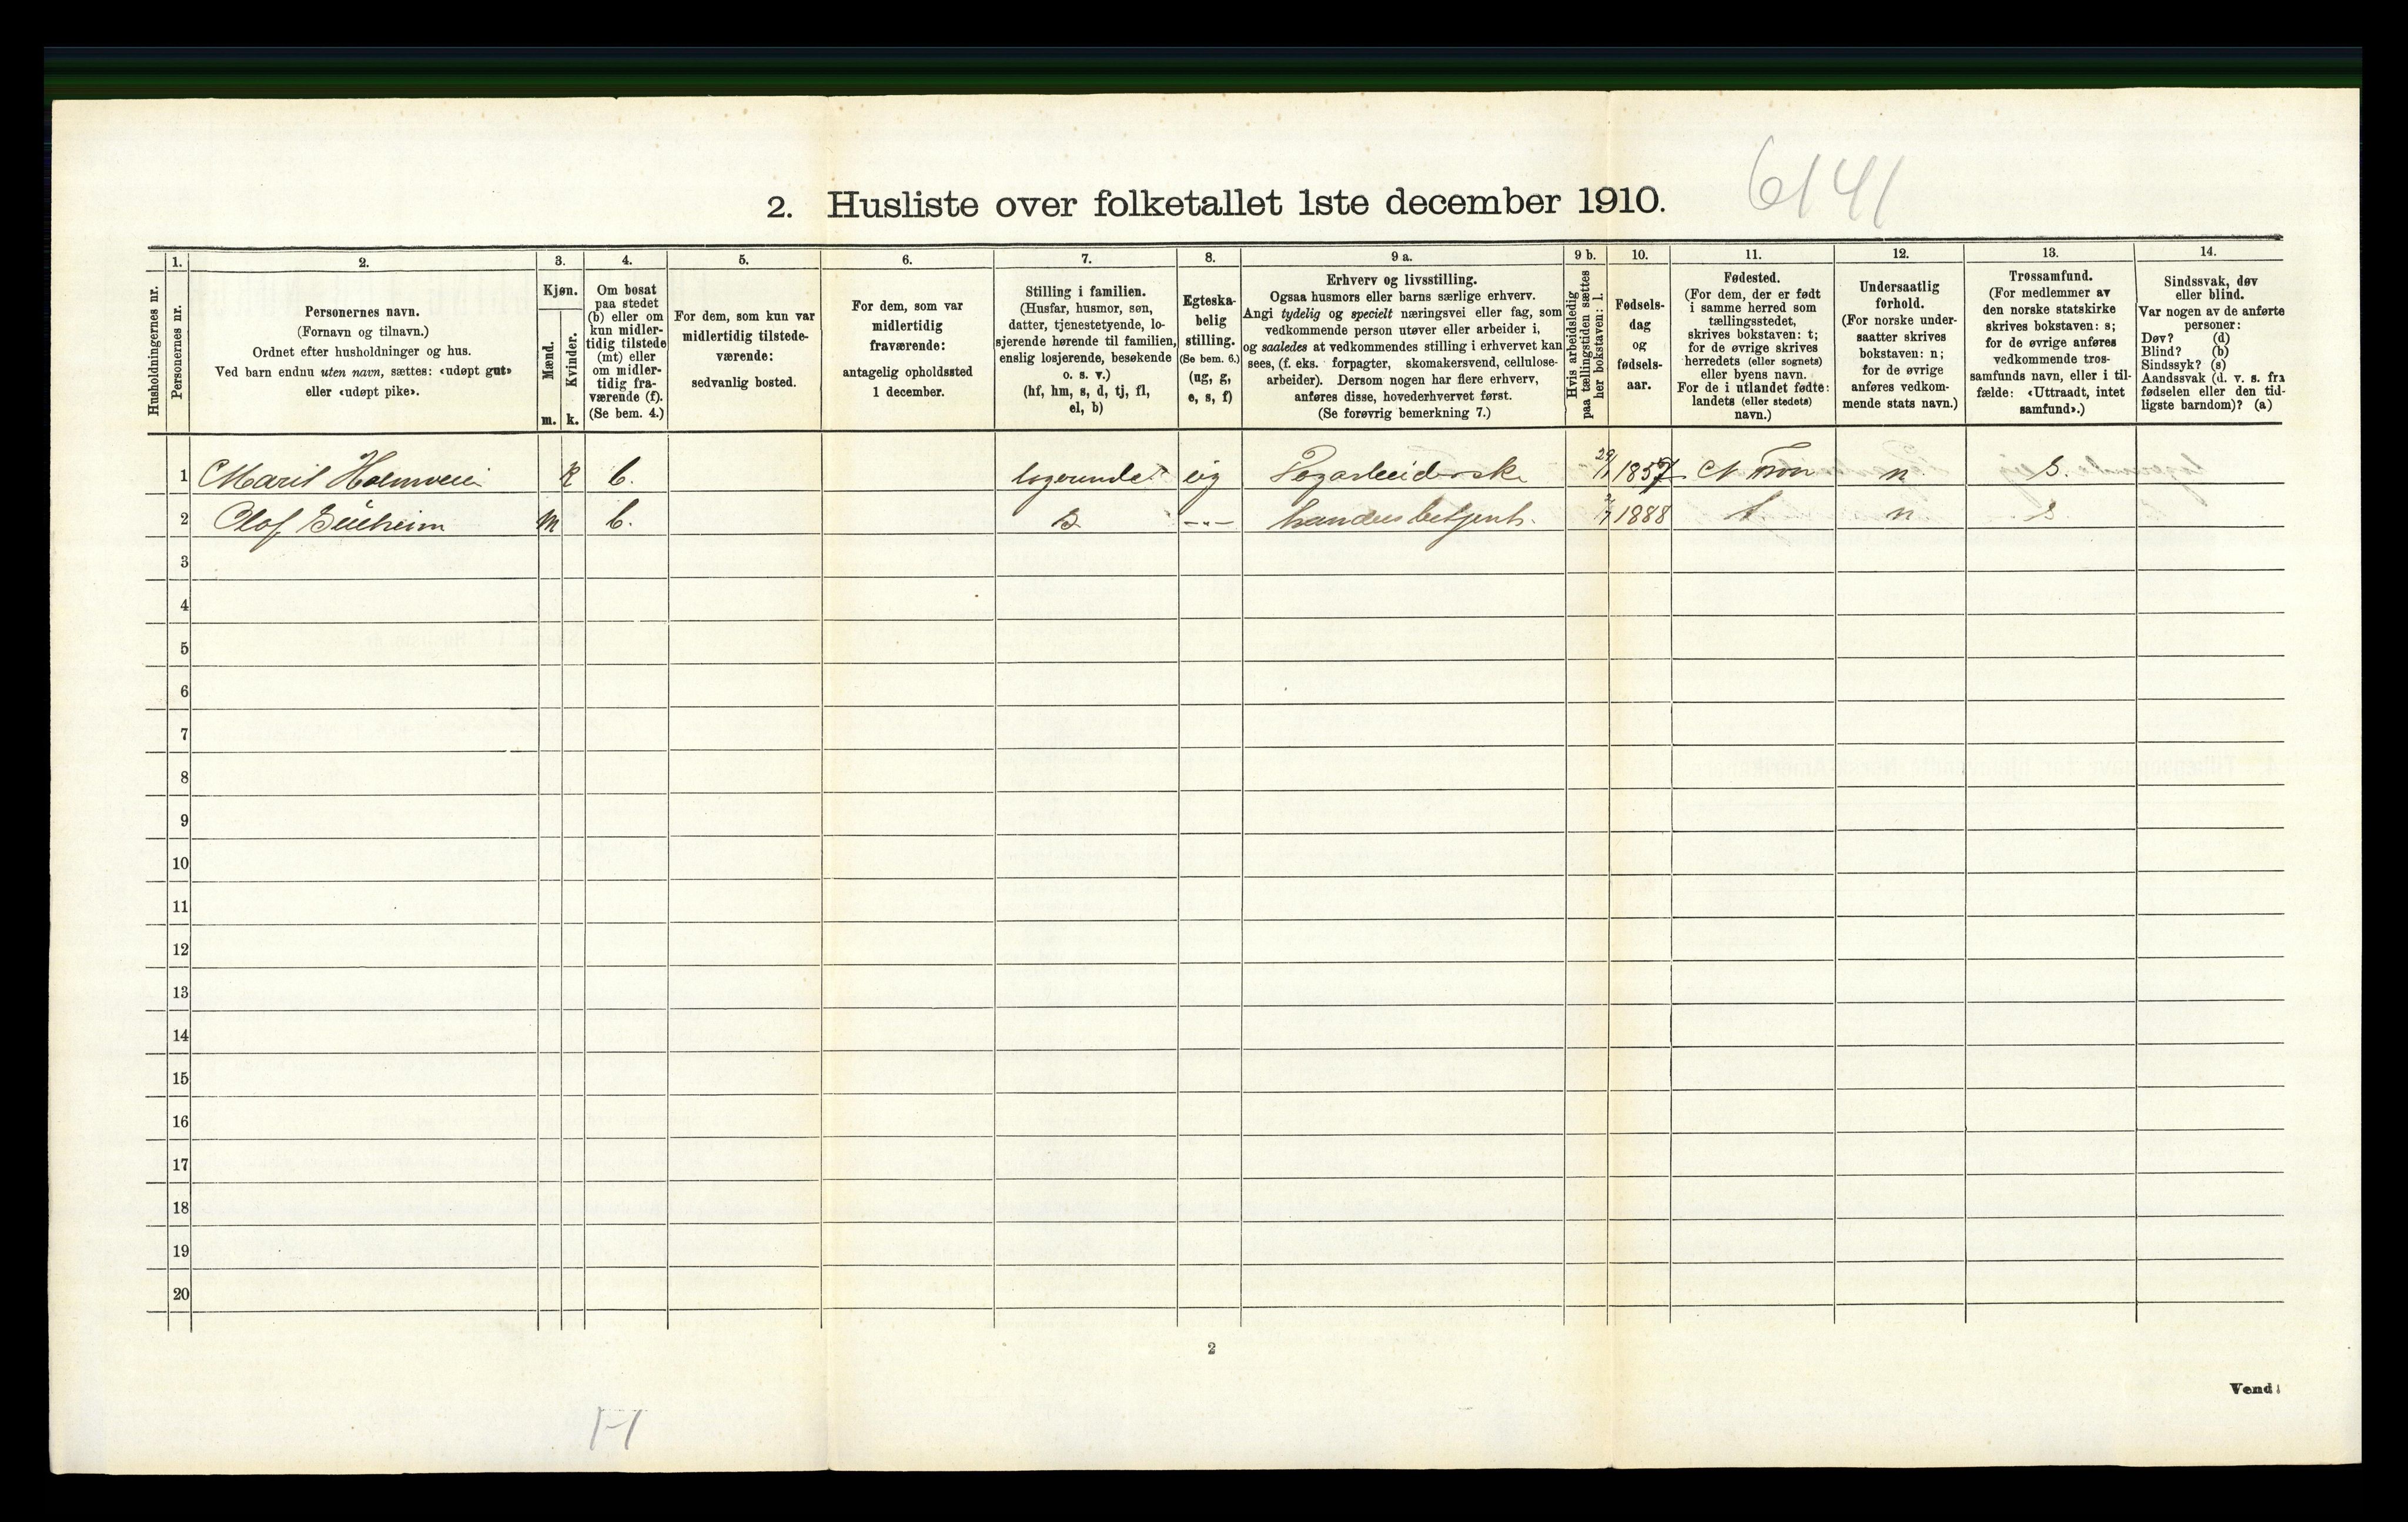 6141
2. Husliste over folketallet 1ste december 1910.
Husholdningernes nr.
1.
Personernes nr.
2.
Personernes navn.
(Fornavn og tilnavn.)
Ordnet efter husholdninger og hus.
Ved barn endnu uten navn, sættes: «udøpt gut»
eller «udøpt pike».
3.
Kjøn.
Mænd.
Kvinder.
m. k.
4.
Om bosat
paa stedet
(b) eller om
kun midler-
tidig tilstede
(mt) eller
om midler-
tidig fra-
værende (f).
(Se bem. 4.)
5.
For dem, som kun var
midlertidig tilstede-
værende:
sedvanlig bosted.
6.
For dem, som var
midlertidig
fraværende:
antagelig opholdssted
1 december.
7.
Stilling i familien.
(Husfar, husmor, søn,
datter, tjenestetyende, lo-
sjerende hørende til familien,
enslig losjerende, besøkende
o. s. v.)
(hf, hm, s, d, tj, fl,
el, b)
8.
Egteska-
belig
stilling.
(Se bem. 6.)
(ug, g,
e, s, f)
9 a.
Erhverv og livsstilling.
Ogsaa husmors eller barns særlige erhverv.
Angi tydelig og specielt næringsvei eller fag, som
vedkommende person utøver eller arbeider i,
og saaledes at vedkommendes stilling i erhvervet kan
sees, (f. eks. forpagter, skomakersvend, cellulose-
arbeider). Dersom nogen har flere erhverv,
anføres disse, hovederhvervet først.
(Se forøvrig bemerkning 7.)
9 b.
Hvis arbeidsledig
paa tællingstiden sættes
her bokstaven: l.
10.
Fødsels-
dag
og
fødsels-
aar.
11.
Fødested.
(For dem, der er født
i samme herred som
tællingsstedet,
skrives bokstaven: t;
for de øvrige skrives
herredets (eller sognets)
eller byens navn.
For de i utlandet fødte:
landets (eller stedets)
navn.)
12.
Undersaatlig
forhold.
(For norske under-
saatter skrives
bokstaven: n;
for de øvrige
anføres vedkom-
mende stats navn.)
13.
Trossamfund.
(For medlemmer av
den norske statskirke
skrives bokstaven: s;
for de øvrige anføres
vedkommende tros-
samfunds navn, eller i til-
fælde: «Uttraadt, intet
samfund».)
14.
Sindssvak, døv
eller blind.
Var nogen av de anførte
personer:
Døv? (d)
Blind? (b)
Sindssyk? (s)
Aandssvak (d. v. s. fra
fødselen eller den tid-
ligste barndom)? (a)
1 Marit Holmveie k b. logerende 1857 N Fron n s.
2 Olof m b. S -"- handelsbetjent. 1888 t n s
3
4
5
6
7
8
9
10
11
12
13
14
15
16
17
18
19
20
2
Vend!